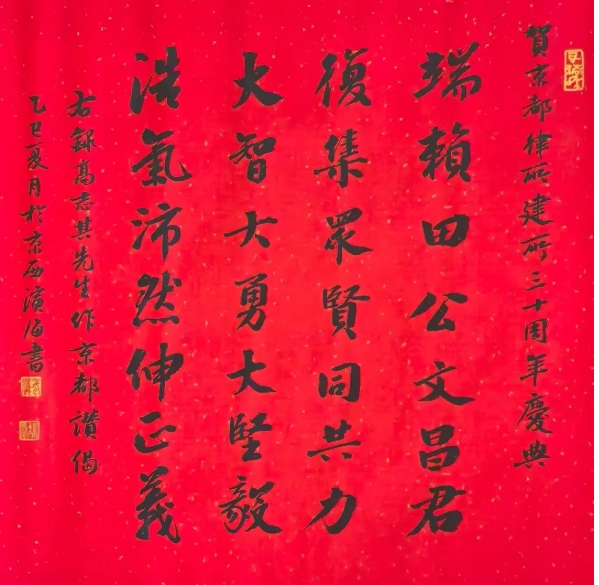 賀京都律所建所三十周年慶典
端賴田公文昌君
復集眾賢同共力
大智大勇大堅毅
浩氣沛然伸正義
右錄高志其先生作京都讚偈
乙巳夏月於京西濱海書